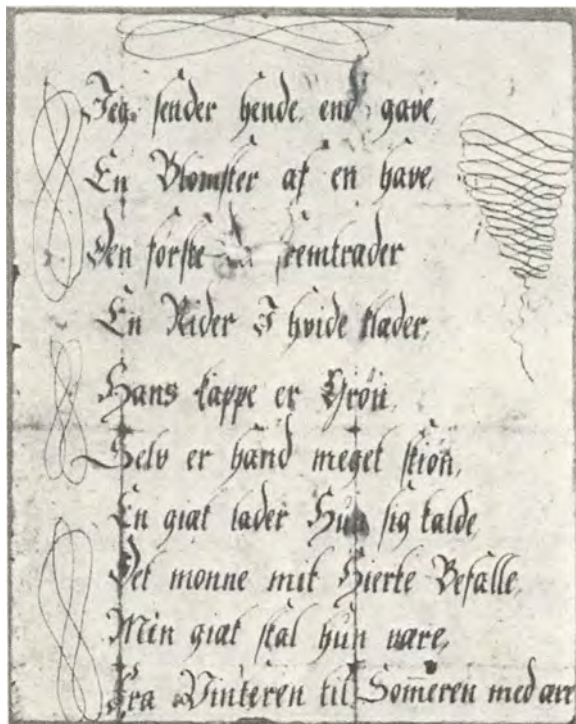 Jeg sender hende end gave,
En Blomster af en have,
Den første fremtræder
En Rider I hvide klæder,
Hans kappe er Grøn,
Selv er hånd meget skiøn,
En giæk lader Hun sig kalde,
Det monne mit Hierte Befalle,
Min giæk skal hun være,
Fra Vinteren til Som̄eren med ære